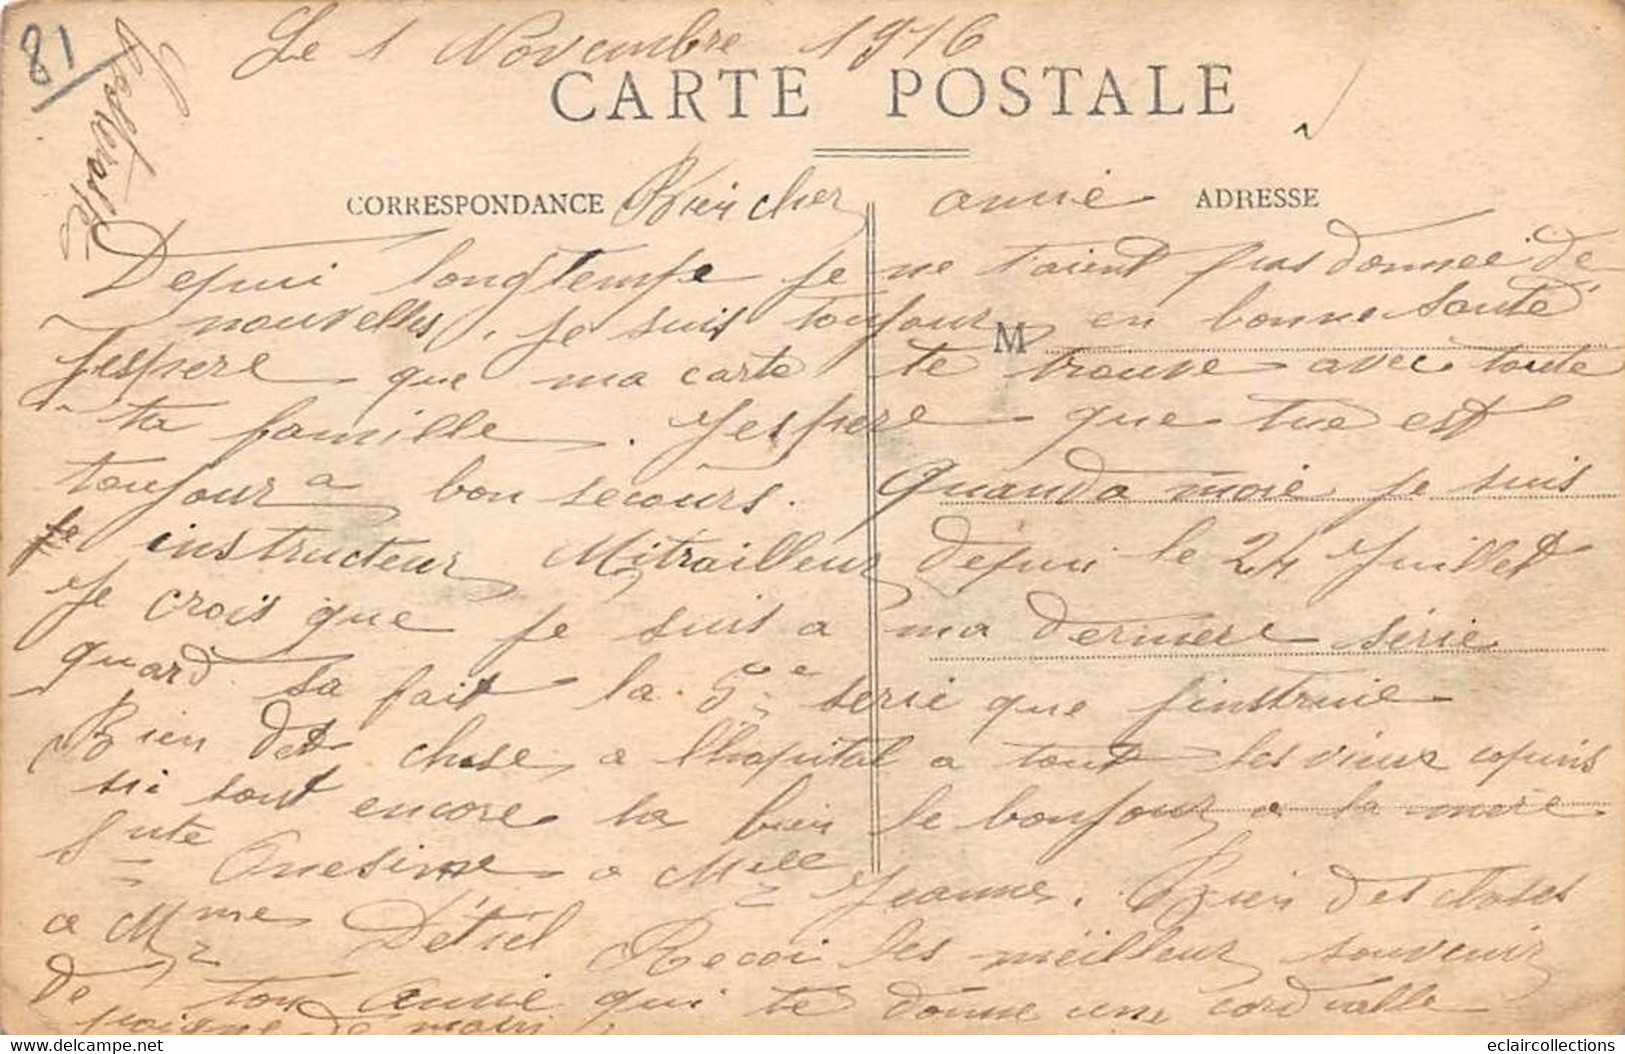 81
Le 1 Novembre 1916
CARTE POSTALE
CORRESPONDANCE
ADRESSE
Bien cher amie
Depui longtemps je ne t'aient pas donnee de
nouvelles, Je suis toujour en bonne santé
M
J'espere que ma carte te trouve avec toute
ta famille. J'espere que tue est
toujour a bon secours. Quand a moie je suis
instructeur Mitrailleur depui le 24 Juillet
Je crois que je suis a ma derniere série
quard sa fait la 5e serie que j'instruie
Bien des chose a l'hopital a tout les vieux copins
si sont encore la bien le bonjour a la mere
Onesime a Mlle Jeanne. Bien des choses
a Mme Détiel Recoi les meilleur souvenir
de ton amie qui te donne une cordialle
poigne de main
www.delcampe.net
eclaircollections